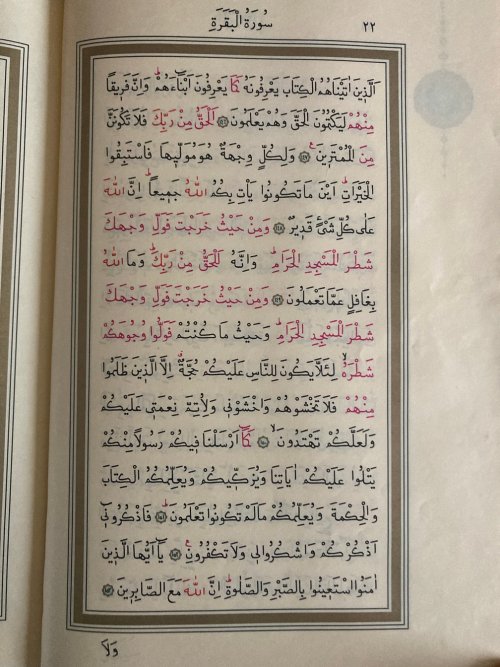 سُورَةُ الْبَقَرَةِ ٢٢
اَلَّذ۪ينَ اٰتَيْنَاهُمُ الْكِتَابَ يَعْرِفُونَهُ كَمَا يَعْرِفُونَ اَبْنَٓاءَهُمْۜ وَاِنَّ فَر۪يقًا
مِنْهُمْ لَيَكْتُمُونَ الْحَقَّ وَهُمْ يَعْلَمُونَ ﴿١٤٦﴾ اَلْحَقُّ مِنْ رَبِّكَ فَلَا تَكُونَنَّ
مِنَ الْمُمْتَر۪ينَ۟ ﴿١٤٧﴾ وَلِكُلٍّ وِجْهَةٌ هُوَ مُوَلّ۪يهَا فَاسْتَبِقُوا
الْخَيْرَاتِۜ اَيْنَ مَا تَكُونُوا يَأْتِ بِكُمُ اللّٰهُ جَم۪يعًاۜ اِنَّ اللّٰهَ
عَلٰى كُلِّ شَيْءٍ قَد۪يرٌ ﴿١٤٨﴾ وَمِنْ حَيْثُ خَرَجْتَ فَوَلِّ وَجْهَكَ
شَطْرَ الْمَسْجِدِ الْحَرَامِۜ وَاِنَّهُ لَلْحَقُّ مِنْ رَبِّكَۜ وَمَا اللّٰهُ
بِغَافِلٍ عَمَّا تَعْمَلُونَ ﴿١٤٩﴾ وَمِنْ حَيْثُ خَرَجْتَ فَوَلِّ وَجْهَكَ
شَطْرَ الْمَسْجِدِ الْحَرَامِۜ وَحَيْثُ مَا كُنْتُمْ فَوَلُّوا وُجُوهَكُمْ
شَطْرَهُۙ لِئَلَّا يَكُونَ لِلنَّاسِ عَلَيْكُمْ حُجَّةٌۗ اِلَّا الَّذ۪ينَ ظَلَمُوا
مِنْهُمْ فَلَا تَخْشَوْهُمْ وَاخْشَوْن۪ي وَلِاُتِمَّ نِعْمَت۪ي عَلَيْكُمْ
وَلَعَلَّكُمْ تَهْتَدُونَۙ ﴿١٥٠﴾ كَمَٓا اَرْسَلْنَا ف۪يكُمْ رَسُولًا مِنْكُمْ
يَتْلُوا عَلَيْكُمْ اٰيَاتِنَا وَيُزَكّ۪يكُمْ وَيُعَلِّمُكُمُ الْكِتَابَ
وَالْحِكْمَةَ وَيُعَلِّمُكُمْ مَا لَمْ تَكُونُوا تَعْلَمُونَۜ ﴿١٥١﴾ فَاذْكُرُون۪ٓي
اَذْكُرْكُمْ وَاشْكُرُوا ل۪ي وَلَا تَكْفُرُونِ۟ ﴿١٥٢﴾ يَٓا اَيُّهَا الَّذ۪ينَ
اٰمَنُوا اسْتَع۪ينُوا بِالصَّبْرِ وَالصَّلٰوةِۜ اِنَّ اللّٰهَ مَعَ الصَّابِر۪ينَ ﴿١٥٣﴾
وَلَا